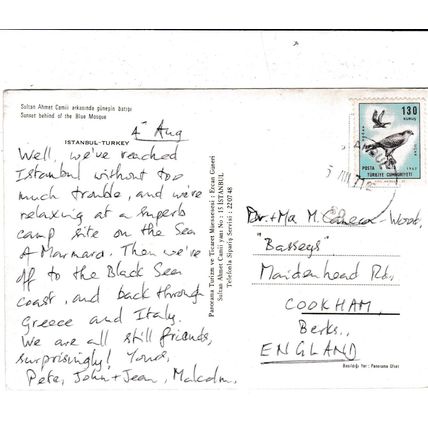 Sultan Ahmet Camii arkasında güneşin batışı
Sunset behind of the Blue Mosque
4" Aug
ISTANBUL-TURKEY
Well, we've reached
Istanbul without too
much trouble, and we're
relaxing at a superb
camp site on the Sea
of Marmara. Then we're
off to the Black Sea
coast, and back through
Greece and Italy.
We are all still friends,
surprisingly! Yours,
Pete, John + Jean, Malcolm.
Panorama Turizm ve Ticaret Müessesesi : Ercan Güneri
Sultan Ahmet Camii yanı No : 15 İSTANBUL
Telefonla Sipariş Servisi : 220748
130
KURUŞ
POSTA
1967
TÜRKİYE CUMHURİYETİ
Dr. + Ma M. Cameron Wood,
"Basseys"
Maidenhead Rd.,
COOKHAM,
Berks.,
ENGLAND
Basıldığı Yer : Panorama Ofset